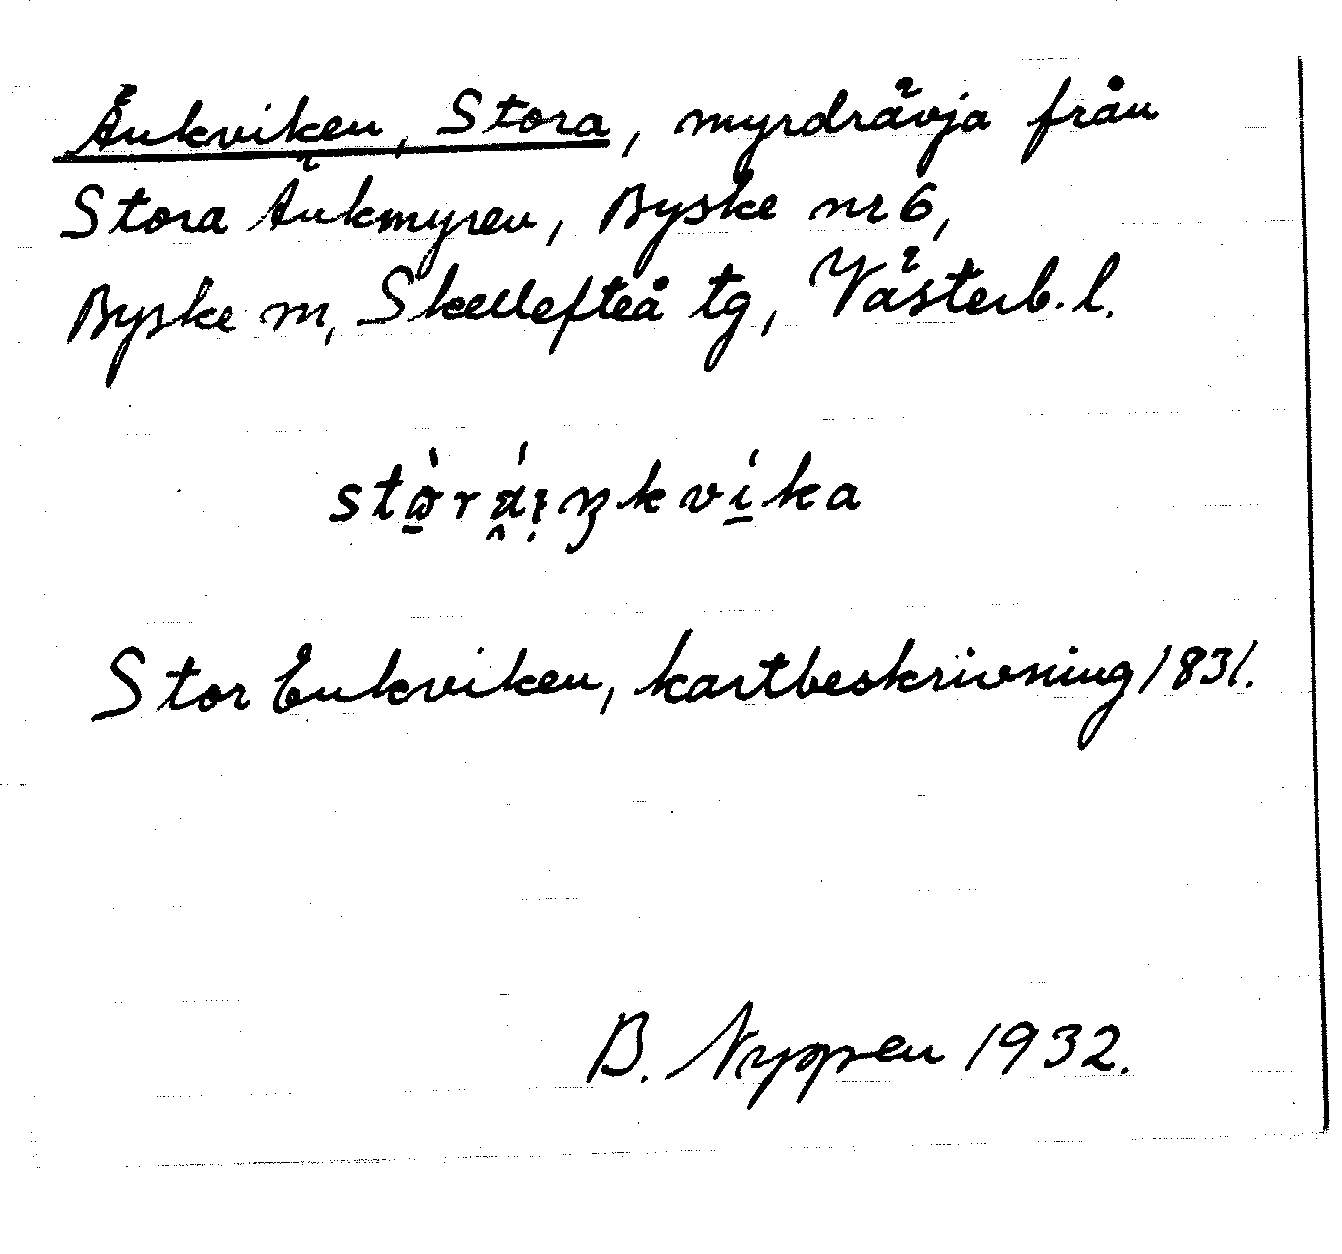 Änkviken, Stora, myrdrävja från
Stora Änkmyren, Byske nr 6,
Byske sn, Skellefteå tg, Västerb. l.
Stor Enkviken, kartbeskrivning 1831.
B. Nyppen 1932.